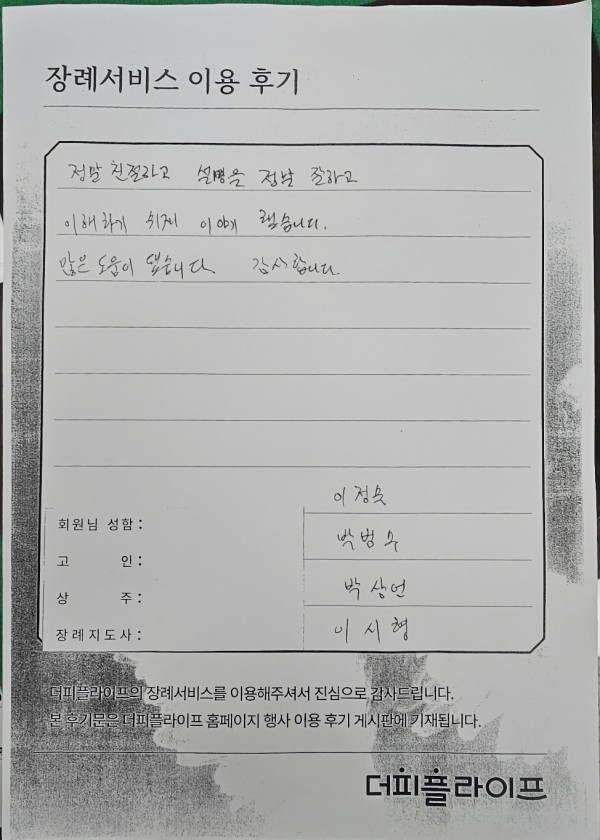 장례서비스 이용 후기
정말 친절하고 설명을 정말 잘하고
이해하기 쉬게 이야기 했습니다.
많은 도움이 됐습니다. 감사합니다.
회원님 성함 : 이정
고 인 : 박범수
상 주 : 박상언
장례지도사 : 이시형
더피플라이프의 장례서비스를 이용해주셔서 진심으로 감사드립니다.
본 후기문은 더피플라이프 홈페이지 행사 이용 후기 게시판에 기재됩니다.
더피플라이프